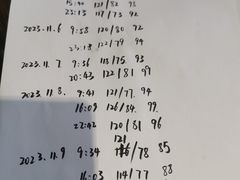 15:40 121/82 93
23:13 117/73 92
2023.11.6 9:58 120/80 92
23:18 122/79 94
2023.11.7. 9:36 113/75 93
20:43 122/81 99
2023.11.8. 9:41 121/77. 94
16:09 126/84. 79.
22:42 120/81 96
121
2023.11.9 9:34 /78 85
16:03 114/77 88